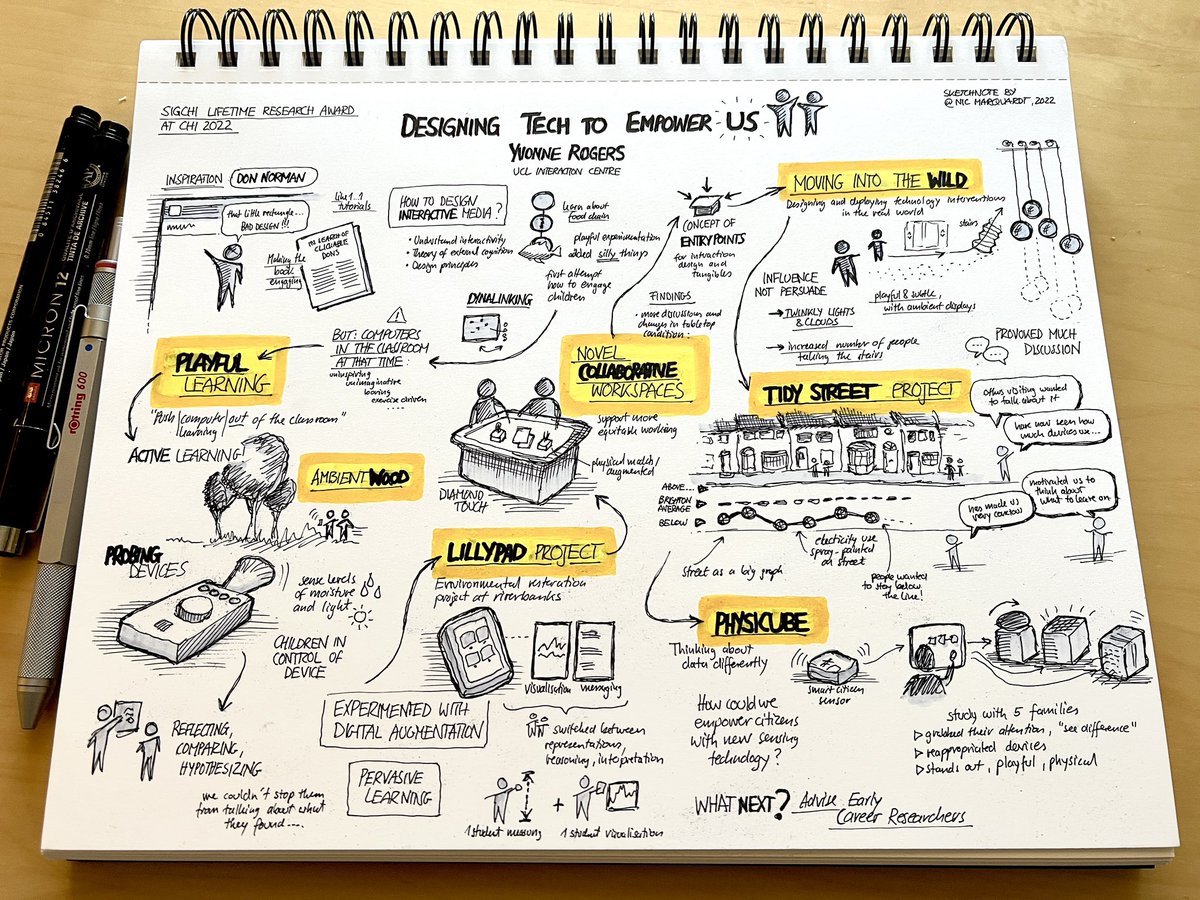 SIGCHI LIFETIME RESEARCH AWARD
AT CHI 2022
DESIGNING TECH TO EMPOWER US
YVONNE ROGERS
UCL INTERACTION CENTRE
SKETCHNOTE BY
@NIC MARQUARDT, 2022
INSPIRATION: DON NORMAN
that little rectangle...
BAD DESIGN!!!
like 1:1
tutorials
Making the
book
engaging
IN SEARCH OF
CLICKABLE
DONS
HOW TO DESIGN
INTERACTIVE MEDIA?
• Understand interactivity
• Theory of external cognition
• Design principles
learn about
food chain
playful experimentation
added silly things
first attempt
how to engage
children
DYNALINKING
BUT: COMPUTERS
IN THE CLASSROOM
AT THAT TIME:
uninspiring
unimaginative
boring
exercise driven
PLAYFUL
LEARNING
"Push computer learning out of the classroom"
ACTIVE LEARNING!
AMBIENT WOOD
PROBING
DEVICES
sense levels
of moisture
and light
CHILDREN IN
CONTROL OF
DEVICE
REFLECTING,
COMPARING,
HYPOTHESIZING
we couldn't stop them
from talking about what
they found....
EXPERIMENTED WITH
DIGITAL AUGMENTATION
PERVASIVE
LEARNING
LILLYPAD PROJECT
Environmental restoration
project at riverbanks
visualisation
messaging
switched between
representations,
reasoning, interpretation
+
1 student
1 student visualisation
CONCEPT OF
ENTRYPOINTS
for interaction
design and
tangibles
FINDINGS
• more discussions and
changes in tabletop
condition:
NOVEL
COLLABORATIVE
WORKSPACES
support more
equitable working
physical models/
augmented
DIAMOND
TOUCH
MOVING INTO THE WILD
Designing and deploying technology interventions
in the real world
stairs
INFLUENCE
NOT PERSUADE
→ TWINKLY LIGHTS
& CLOUDS
→ increased number of people
taking the stairs
playful & subtle,
with ambient displays
PROVOKED MUCH
DISCUSSION
TIDY STREET PROJECT
others visiting wanted
to talk about it
have now seen how
much devices use...
ABOVE...
BRIGHTON
AVERAGE
BELOW
has made us
very
motivated us to
think about
what to leave on
street as a big graph
electricity use
spray-painted
on street
people wanted
to stay below
the line!
PHYSICUBE
Thinking about
data differently
smart citizen
sensor
How could we
empower citizens
with new sensing
technology?
study with 5 families
▷ grabbed their attention, "see difference"
▷ reappropriated devices
▷ stands out, playful, physical
WHAT NEXT? Advise Early
Career Researchers
MICRON 12
rotring 600